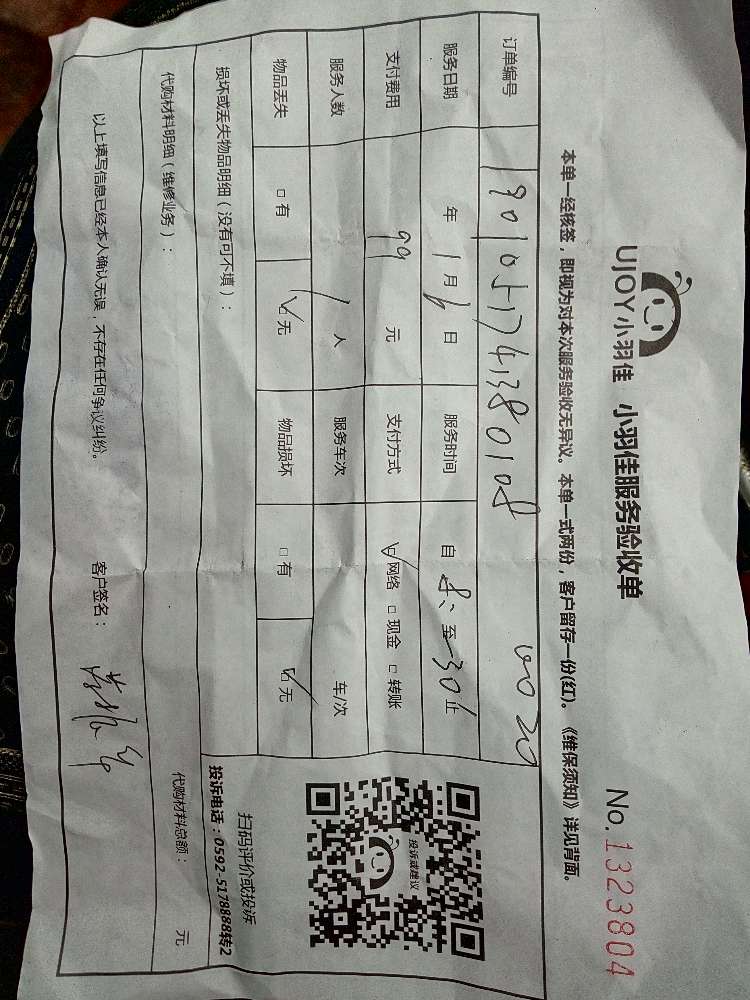 UJOY小羽佳 小羽佳服务验收单
No.1323804
本单一经核签，即视为对本次服务验收无异议。本单一式两份，客户留存一份(红)。《维保须知》详见背面。
订单编号
服务日期 年 1 月 6 日 服务时间 自 8: 至 30 止
支付费用 99 元 支付方式 ☑网络 □现金 □转账
服务人数 1 人 服务车次 车/次
物品丢失 □有 ☑无 物品损坏 □有 ☑无
损坏或丢失物品明细（没有可不填）：
代购材料明细（维修业务）：
代购材料总额： 元
投诉或建议
扫码评价或投诉
投诉电话：0592-5178888转2
以上填写信息已经本人确认无误，不存在任何争议纠纷。 客户签名：